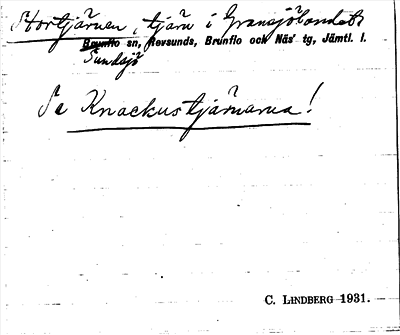 Stortjärnen, tjärn i Gransjölandet
Brunflo sn, Revsunds, Brunflo och Näs' tg, Jämtl. l.
Sundsjö
Se Knackustjärnarna!
C. LINDBERG 1931.